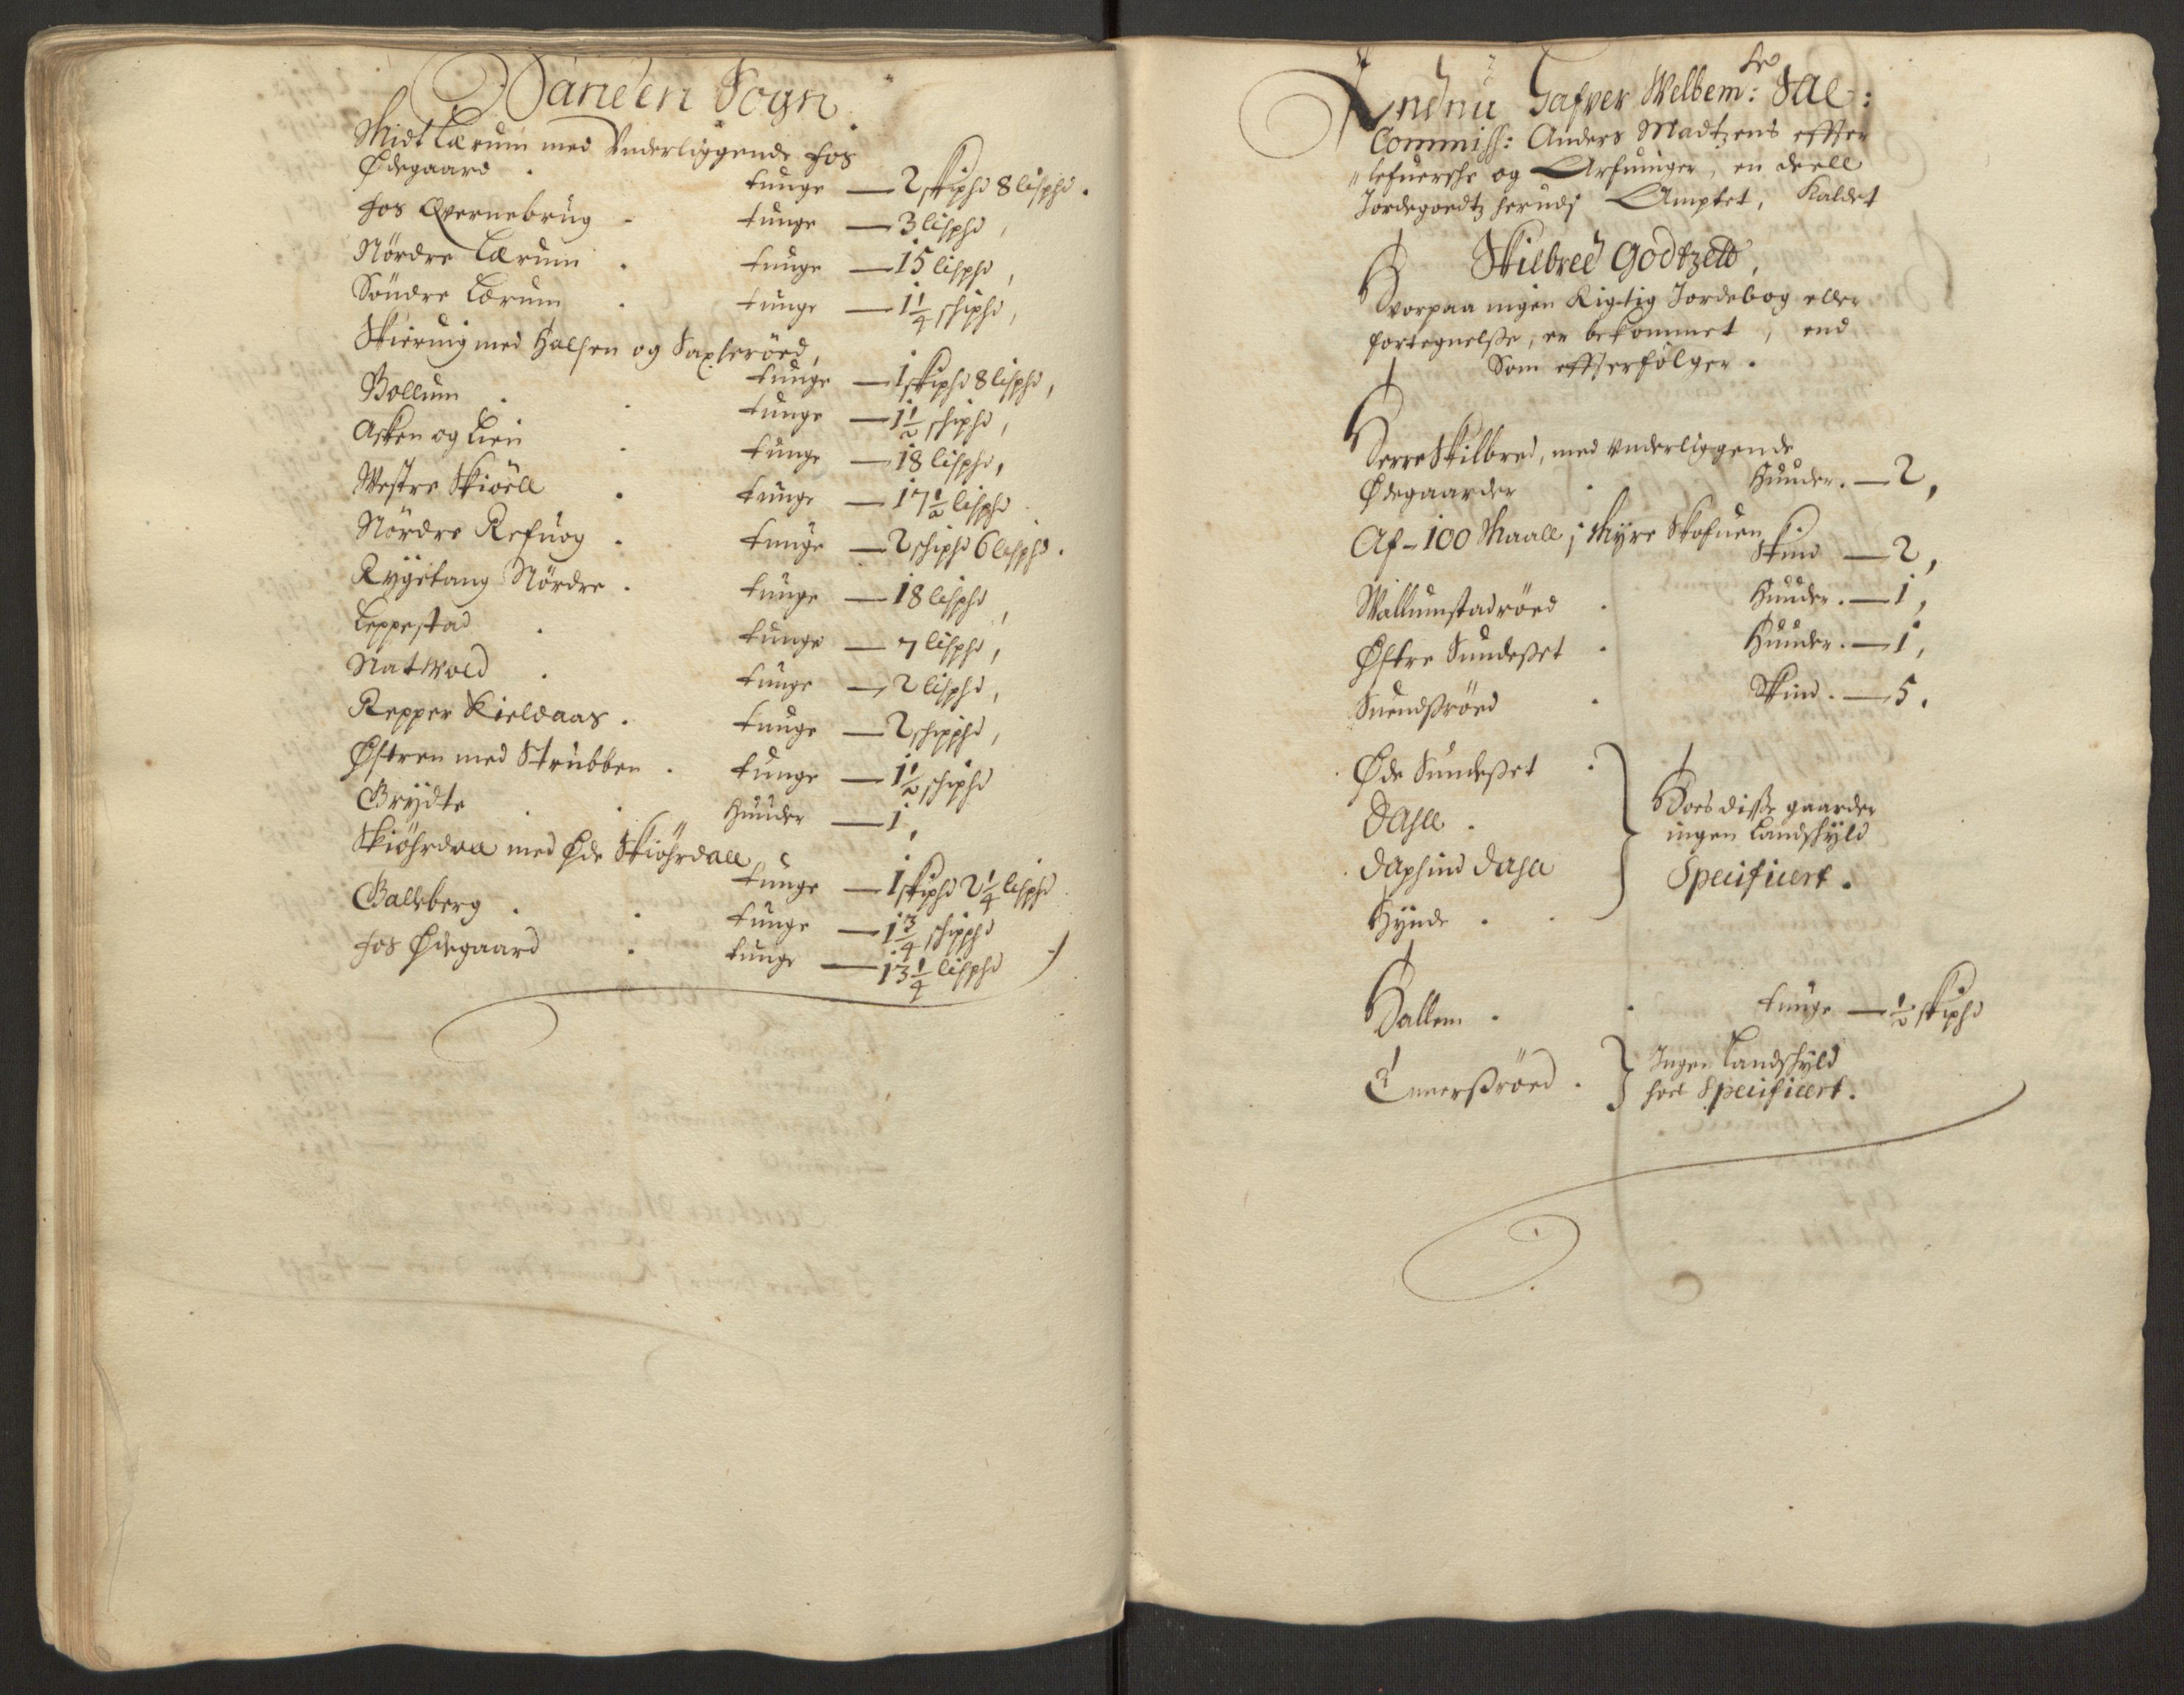 Sanden Sogn
Midt Lærum med Vnderliggende hos
Ødegaard . tunge — 2 skiphd 8 lisphd .
hos Qvernebrug - tunge — 3 lisphd ,
Nördre Lærum . tunge — 15 lisphd ,
Söndre Lærum . tunge — 1 1/4 schiphd ,
Skiernig med Halsen og Saxseröed ,
tunge — 1 skiphd 8 lisphd ,
Bollum . . tunge — 1 1/2 schiphd ,
Asken og Lien . tunge — 18 lisphd ,
Westre Skiöell . tunge — 17 1/2 lisphd .
Nördre Refuog . tunge — 2 schiphd 6 lisphd .
Rygetang Nördre . tunge — 18 lisphd ,
Leppestad . tunge — 7 lisphd ,
Natwold . tunge — 2 lisphd ,
Repper Kieldaas . tunge — 2 schipphd ,
Østren med Strubben . tunge — 1 1/2 schiphd
Grydte . . Huuder — 1 ,
Skiöhrdall med Øde Skiöhrdall ,
tunge — 1 skiphd 2 1/4 lisphd .
Galleberg . . tunge — 1 3/4 schipphd
hos Ødegaard . tunge — 13 1/4 lisphd
Endnu Hafver Welbem: fr Sal:
Commiss: Anders Madtzens effter
" lefuersche og Arfuinger, en deell
Jordegoedtz herudj Amptet, Kaldet
Skilbred Godtzett,
Hvorpaa ingen Rigtig Jordebog eller
fortegnelsse, er bekommet, end
Som effterfölger .
Herre Skilbred, med vnderliggende
Ødegaarder . Huuder . — 2 ,
Af - 100 Maall j Myre Skofuen
Skind — 2 ,
Wallumstadröed . Huuder . — 1 ,
Østre Sundesset . Huuder . — 1 ,
Suendsröed . Skind . — 5 .
Øde Sundesset .
Dahle .
Daphind Dahll
Hynde . .
Hoes disse gaarder
ingen Landskyld
Specificert .
Hallem . . tunge — 1/2 skiphd
Ennersröed .
Ingen Landskyld
hoes Specificert .